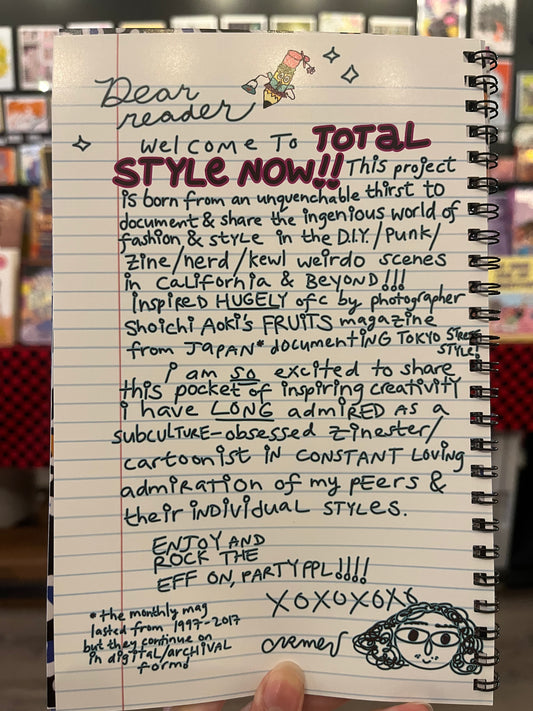 Dear
reader
Welcome To TOTAL
STYLE NOW!! This project
is born from an unquenchable thirst to
document & share the ingenious world of
fashion & style in the D.I.Y./Punk/
zine/nerd/kewl weirdo scenes
in CALiforniA & BEYOND!!!
inspired HUGELY ofc by photographer
Shoichi Aoki's FRUITS magazine
from JAPAN* documenting TOKYO STREET
STYLE!
i am so excited to share
this pocket of inspiring creativity
i have LONG admired AS a
subculture-obsessed zinester/
cartoonist in CONSTANT Loving
admiration of my pEErs &
their individual STYLES.
ENJOY AND
ROCK THE
EFF ON, PARTY PPL!!!!
XOXOXOXO
*the monthly mag
lasted from 1997-2017
but they continue on
in digital/ARCHIVAL
form!